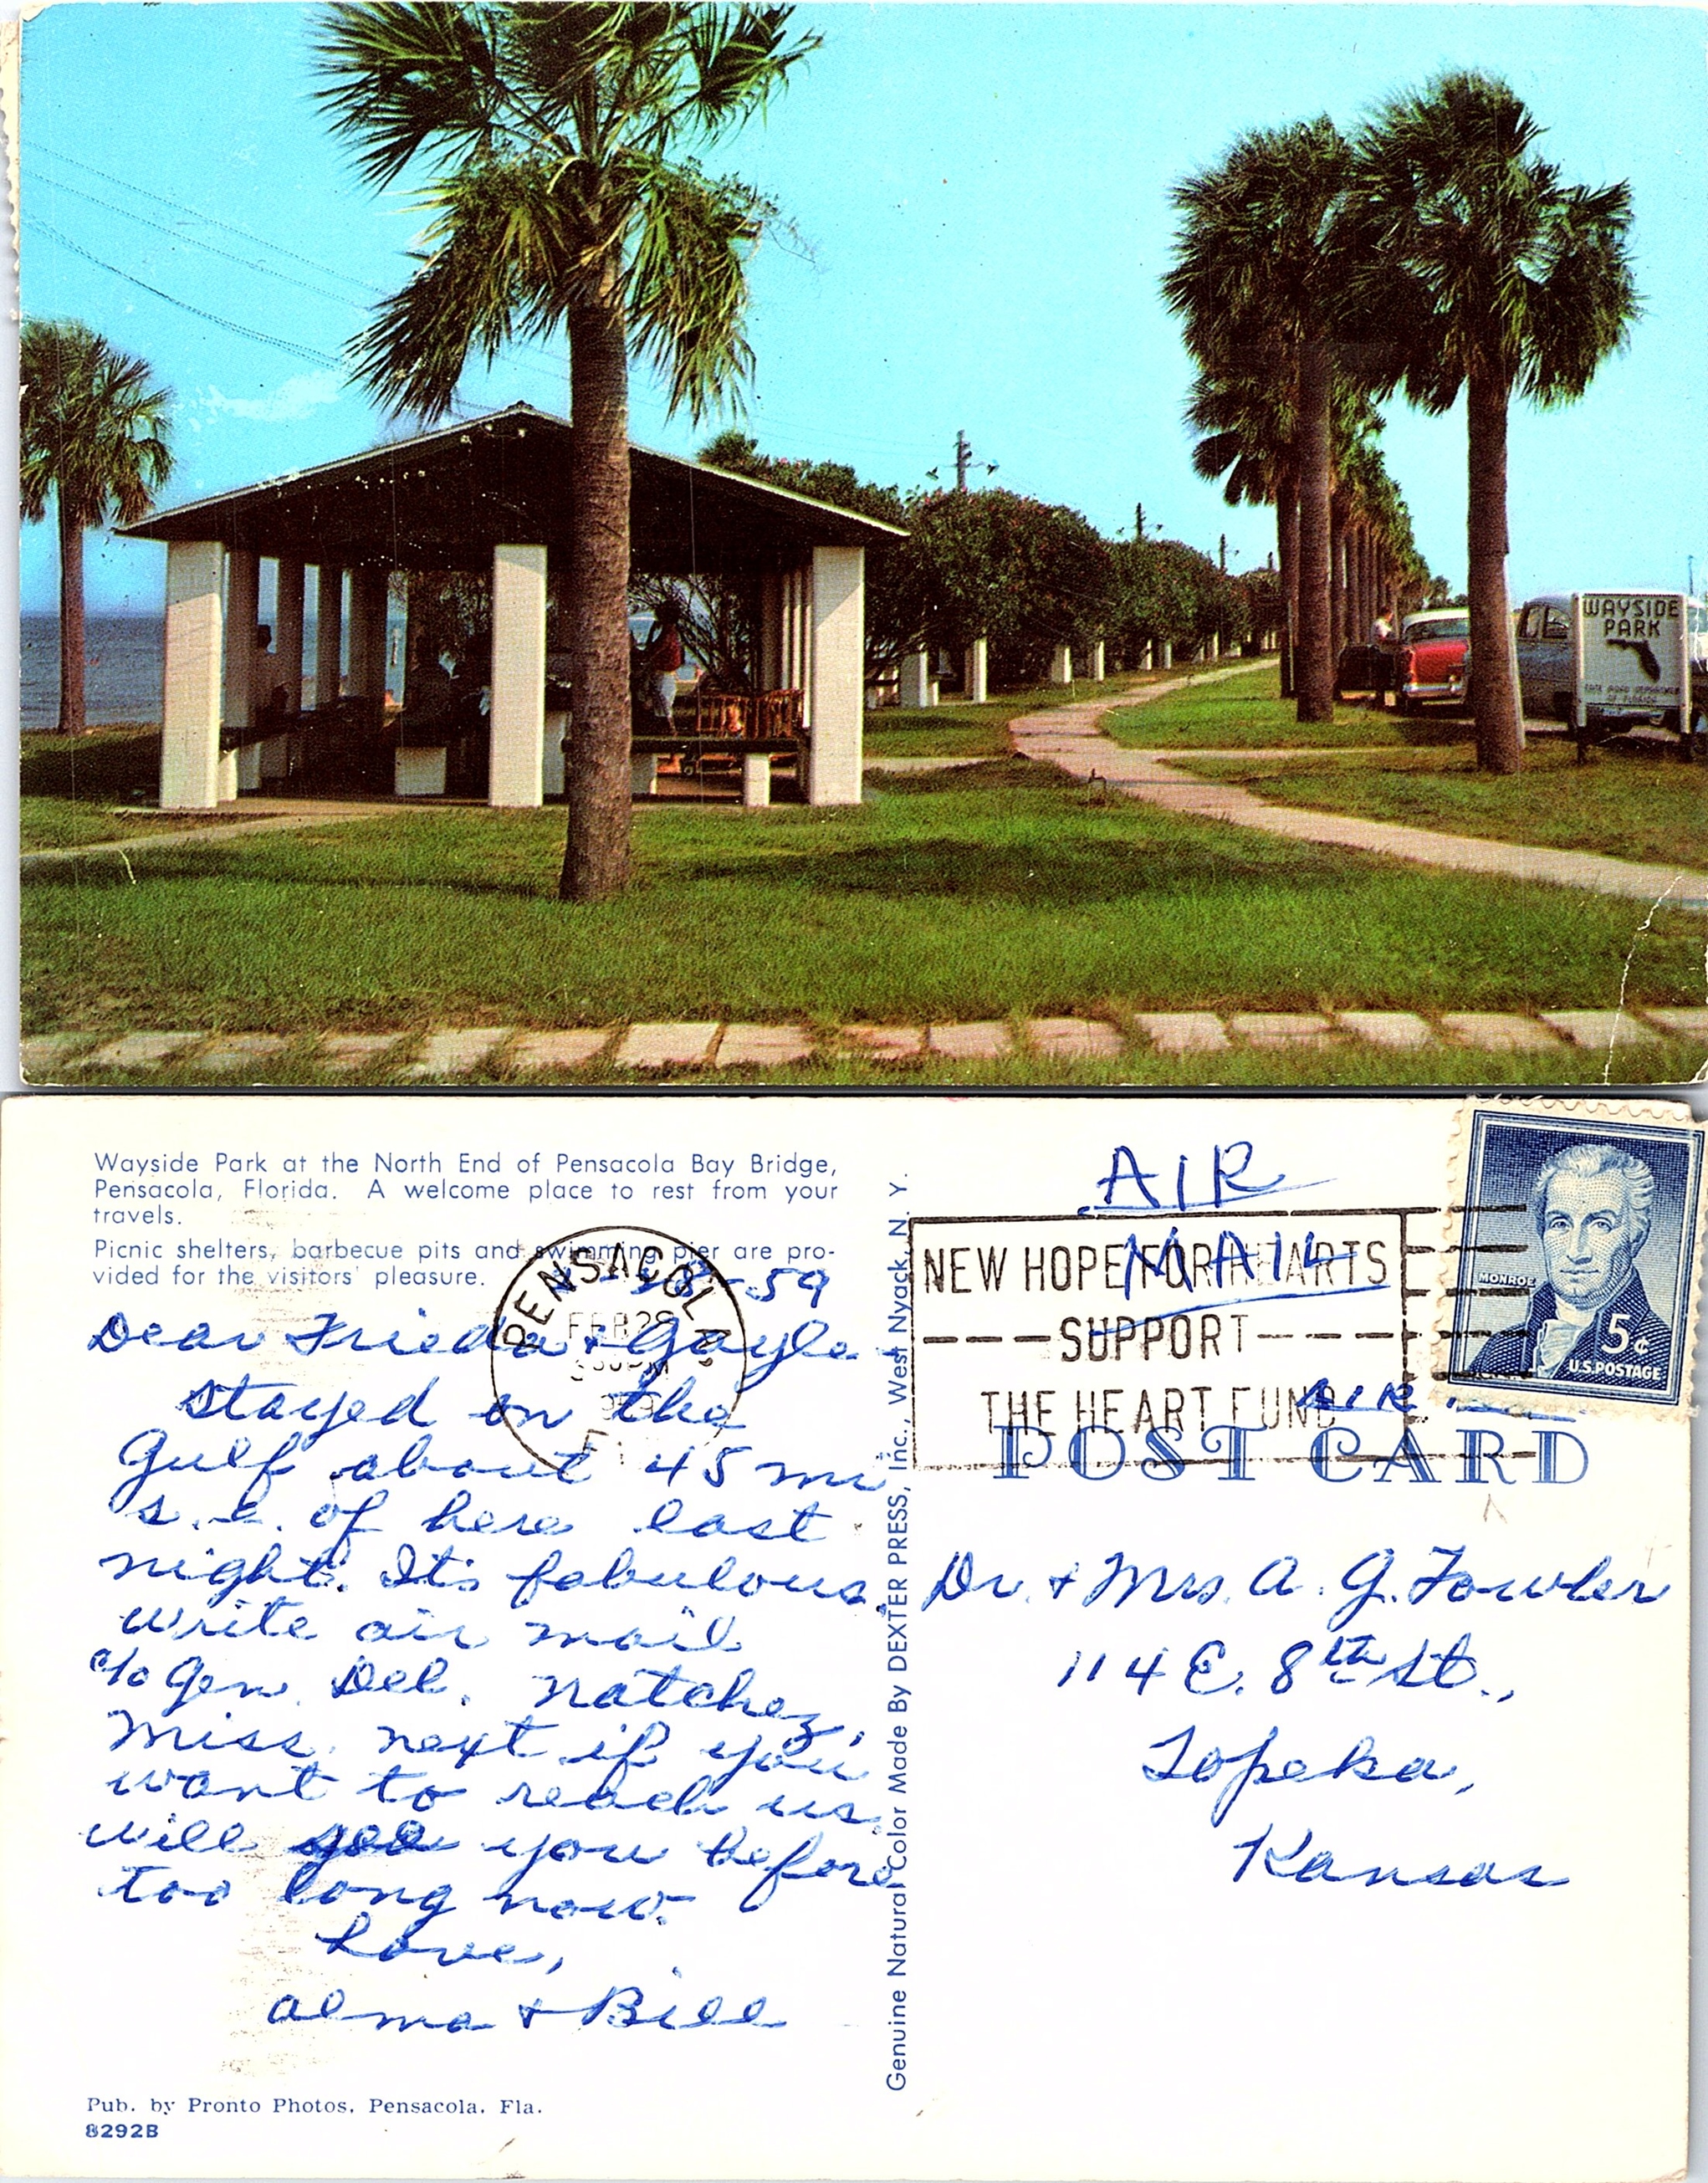 WAYSIDE
PARK
STATE ROAD DEPARTMENT
OF FLORIDA
Wayside Park at the North End of Pensacola Bay Bridge,
Pensacola, Florida. A welcome place to rest from your
travels.
Picnic shelters, barbecue pits and swimming pier are pro-
vided for the visitors' pleasure.
28-59
Dear Frieda + Gayle
Stayed on the
Gulf about 45 mi
s.e. of here last
night. Its fabulous.
write air mail
c/o Gen. Del. Natchez,
Miss. next if you
want to reach us.
will see you before
too long now.
Love,
Alma + Bill
Pub. by Pronto Photos, Pensacola, Fla.
8292B
PENSACOLA
FEB 28
Genuine Natural Color Made By DEXTER PRESS, Inc., West Nyack, N. Y.
AIR
MAIL
NEW HOPE FOR HEARTS
SUPPORT
THE HEART FUND
MONROE
5¢
U.S. POSTAGE
AIR
POST CARD
Dr. + Mrs. A. G. Fowler
114 E. 8th St.,
Topeka,
Kansas